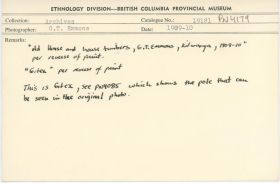 ETHNOLOGY DIVISION—BRITISH COLUMBIA PROVINCIAL MUSEUM
Collection: Archives Catalogue No.: 19181 PN4179
Photographer: G.T. Emmons Date: 1909-10
Remarks:
"Old House and house timbers, G.T. Emmons, Kitwanga, 1909-10"
per reverse of print.
"Gitex" per reverse of print
This is Gitex, see PN4085 which shows the pole that can
be seen in the original photo.